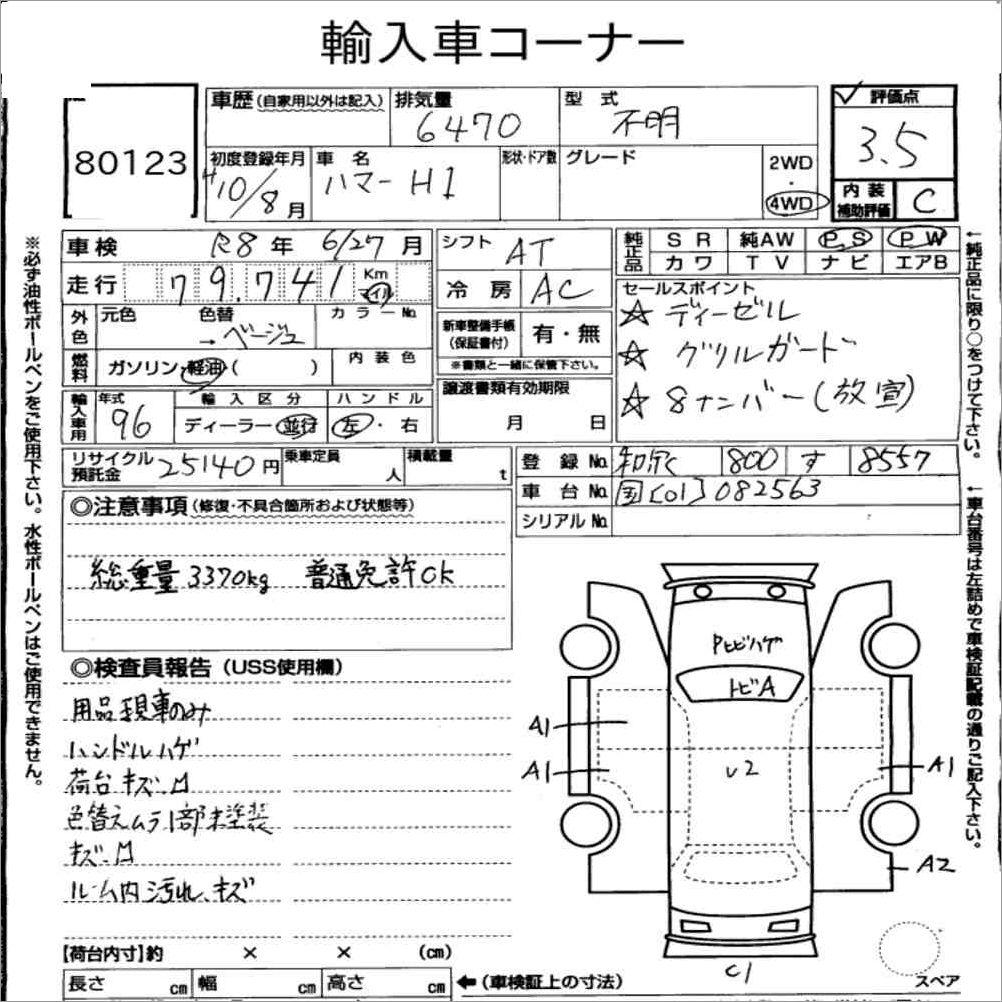 輸入車コーナー
80123
車歴(自家用以外は記入) 排気量 6470 型式 不明 評価点 3.5
初度登録年月 H10/8月 車名 ハマーH1 形状・ドア数 グレード 2WD・4WD 内装補助評価 C
車検 R8年 6/27月 シフト AT 純正品 SR 純AW P.S P.W
カワ TV ナビ エアB
走行 79.741 Km マイル 冷房 AC
セールスポイント
☆ ディーゼル
☆ グリルガード
☆ 8ナンバー(放宣)
外色 元色 色替 → ベージュ カラーNo. 新車整備手帳(保証書付) 有・無
※書類と一緒に保管下さい。
燃料 ガソリン・軽油( ) 内装色
譲渡書類有効期限 月 日
輸入車用 年式 96 輸入区分 ディーラー・並行 ハンドル 左・右
リサイクル預託金 25140円 乗車定員 人 積載量 t
登録No. 和泉 800 す 8557
車台No. 国[01]082563
シリアルNo.
◎注意事項(修復・不具合箇所および状態等)
総重量 3370kg 普通免許OK
◎検査員報告(USS使用欄)
用品現車のみ
ハンドルハゲ
荷台キズ、凹
色替えムラ1部未塗装
キズ、凹
ルーム内汚れ、キズ
Pヒビハゲ
トビA
A1
A1
U2
A1
A2
C1
スペア
【荷台内寸】約 × × (cm)
長さ cm 幅 cm 高さ cm ←(車検証上の寸法)
※必ず油性ボールペンをご使用下さい。水性ボールペンはご使用できません。
←純正品に限り○をつけて下さい。
←車台番号は左詰めで車検証記載の通りご記入下さい。